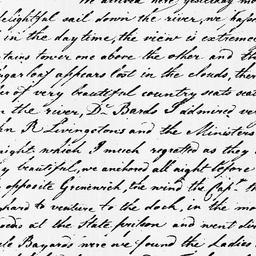 We arrived here yesterday mo
delightful sail down the river, we passe
in the day time, the view is extreme
tains tower one above the other and th
ugar loaf appears lost in the clouds, ther
er of very beautiful country seats seat
n the river, Dr Bards I admired ver
hn R Livingstons and the Ministers
night which I much regreted as they a
y beautiful, we anchored all night before
opposite Greenwich, the wind the Capt. th
hard to venture to the dock, in the mo
oods at the State prison and went di
le Bayards were we found the Ladies